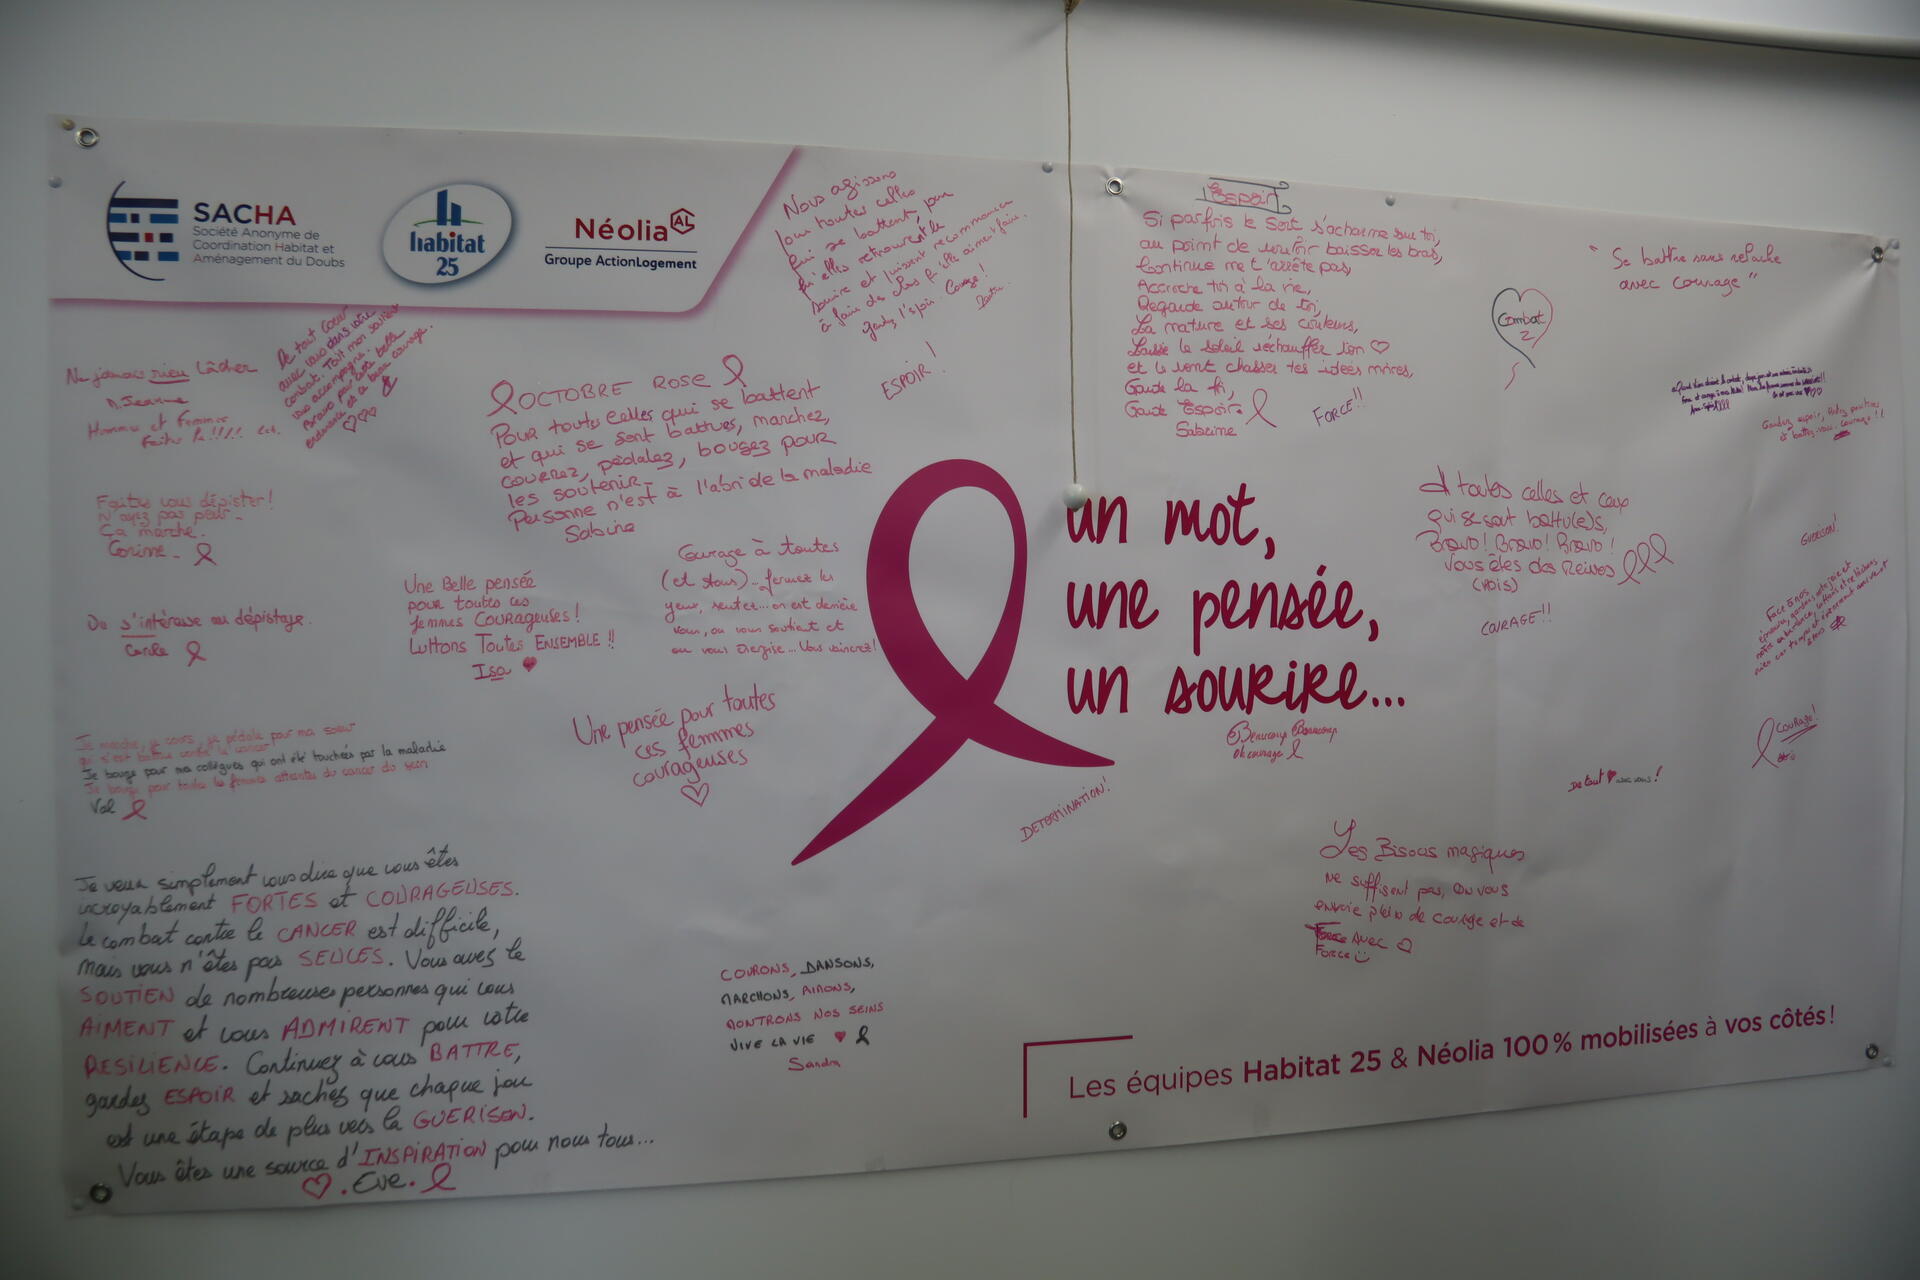 SACHA
Société Anonyme de
Coordination Habitat et
Aménagement du Doubs
habitat
25
Néolia
AL
Groupe ActionLogement
Nous agissons
pour toutes celles
qui se battent, pour
qu'elles retrouvent le
sourire et puissent recommencer
à faire de plus ce qu'elle aiment faire.
gardez l'espoir. Courage!
ESPOIR!
Espoir
Si parfois le sort s'acharne sur toi,
au point de vouloir baisser les bras,
Continue ne t'arrête pas,
Accroche toi à la vie,
Regarde autour de toi,
La nature et ses couleurs,
Laisse le soleil réchauffer ton ♡
et le vent chasser tes idées noires,
Garde la foi,
Garde Espoir.
Sabrine
FORCE!!
Combat
2
" Se battre sans relache
avec courage "
Gardez espoir, Restez positives
et battez-vous. Courage!!
Ne jamais rien Lâcher
Hommes et Femmes
De tout Coeur
avec vous dans votre
combat. Tout mon soutien
vous accompagne.
Bravo pour cette belle
endurance et à bon courage.
♡♡♡
OCTOBRE ROSE
Pour toutes celles qui se battent
et qui se sont battues, marchez,
courrez, pédalez, bougez pour
les soutenir_
Personne n'est à l'abri de la maladie
Sabine
Faites vous dépister!
N'ayez pas peur_
Ça marche.
Corinne_
Ou s'intéresse au dépistage.
Carole
Une Belle pensée
pour toutes ces
femmes Courageuses!
Luttons Toutes ENSEMBLE!!
Isa ♥
Courage à toutes
(et tous)... fermez les
yeux, sentez... on est derrière
vous, on vous soutient et
on vous énergise... Vous vaincrez!
un mot,
une pensée,
un sourire...
A toutes celles et ceux
qui se sont battu(e)s,
Bravo! Bravo! Bravo!
Vous êtes des Reines
(ROIS)
COURAGE!!
GUÉRISON!
Face à nos
Beaucoup Beaucoup
de courage
Une pensée pour toutes
ces femmes
courageuses
♡
Je marche, je cours, je pédale pour ma soeur
qui s'est battue contre le cancer
Je bouge pour mes collègues qui ont été touchées par la maladie
Je bouge pour toutes les femmes atteintes du cancer du sein
Val
DETERMINATION!
De tout ♥ avec vous!
COURAGE!
Les Bisous magiques
ne suffisent pas, on vous
envoie plein de courage et de
Force Avec ♡
Force
Je veux simplement vous dire que vous êtes
incroyablement FORTES et COURAGEUSES.
Le combat contre le CANCER est difficile,
mais vous n'êtes pas SEULES. Vous avez le
SOUTIEN de nombreuses personnes qui vous
AIMENT et vous ADMIRENT pour votre
RESILIENCE. Continuez à vous BATTRE,
gardez ESPOIR et sachez que chaque jour
est une étape de plus vers la GUERISON.
Vous êtes une source d'INSPIRATION pour nous tous...
♡. Eve.
COURONS, DANSONS,
MARCHONS, AIMONS,
MONTRONS NOS SEINS
VIVE LA VIE ♥
Sandra
Les équipes Habitat 25 & Néolia 100% mobilisées à vos côtés!